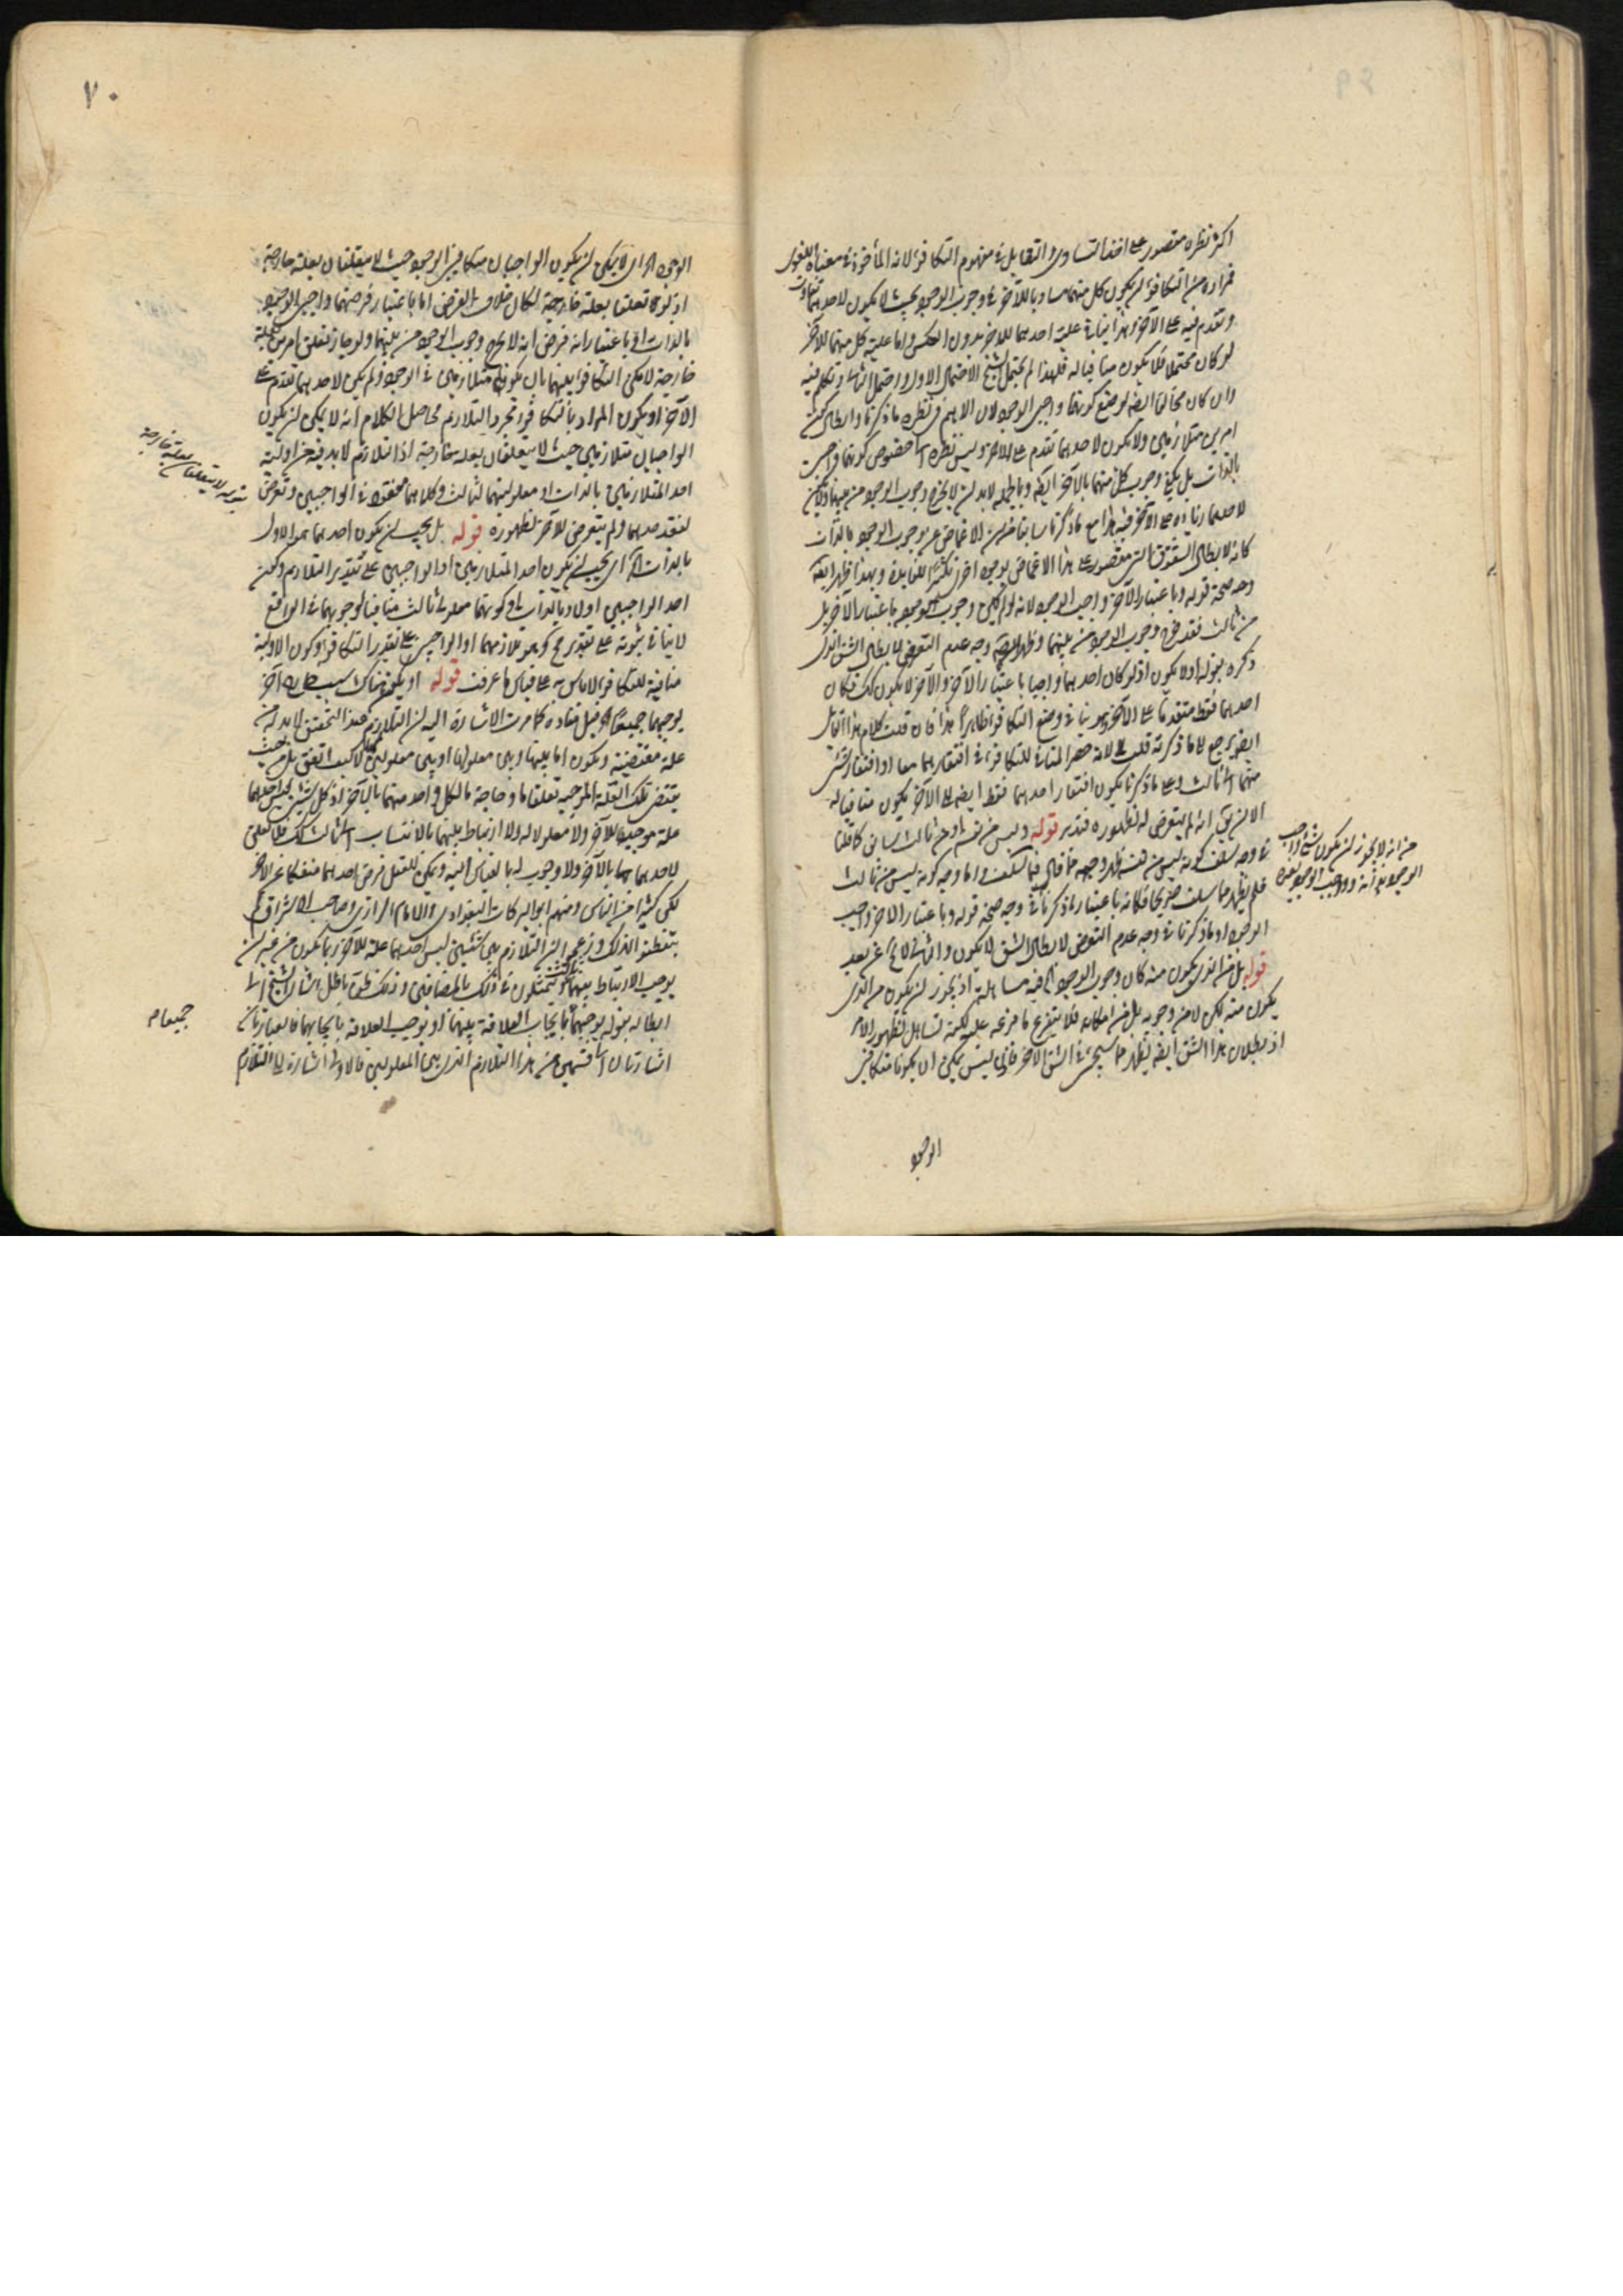 اكثر نظره مقصور على اخذ التساوى والتقابل فى مفهوم التكافؤ لانه المأخوذ فى معناه اللغوى
فمراده من التكافؤ ان يكون كل منهما مساويا للآخر فى وجوب الوجود بحيث لا يكون لاحدهما تفاوت
وتقدم فيه على الآخر وهذا ينافى علية احدهما للاخر بدون العكس واما علية كل منهما للآخر
لو كان محتملا فلا يكون منافيا له فلهذا لم يحتمل الشيخ الاحتمال الاول واحتمل الثانى وتكلم فيه
وان كان مخالفا ايضا لوضع كونهما واجبى الوجود لان الاهم فى نظره ما ذكرنا وابطال كون
امرين متلازمين ولا يكون لاحدهما تقدم على الاخر وليس نظره الى خصوص كونهما واجبين
بالذات بل يكفى وجوب كل منهما بالآخر ايضا وبالجملة لابد ان لا يخرج وجوب الوجود من بينهما ولا يكون
لاحدهما زيادة على الآخر فيه هذا مع ما ذكرنا سابقا من ان الاغماض عن وجوب الوجود بالذات
كأنه لابطال الشقوق التى مقصوره على هذا الاغماض بوجوه اخر تكثيرا للفائدة وبهذا ظهر ايضا
وجه صحة قوله وباعتبار الآخر واجب الوجود لانه لو لم يكن وجوب الوجود باعتبار الآخر بل
من ثالث فقد خرج وجوب الوجود من بينهما وظهر ايضا وجه عدم التعرض لابطال الشق الذى
ذكره بقوله اولا يكون اذ لو كان احدهما واجبا باعتبار الآخر والآخر لا يكون كك فكان
احدهما فقط متقدما على الآخر وهو ينافى وضع التكافؤ ظاهرا هذا فان قلت كلام هذا القائل
ايضا يرجع الى ما ذكرته قلت لا لانه حصر المنافى للتكافؤ فى افتقارهما معا او افتقار شئ
منهما الى ثالث وعلى ما ذكرنا يكون افتقار احدهما فقط ايضا الى الآخر يكون منافيا له
الا ان يق انه لم يتعرض له لظهوره فتدبر قوله وليس من نفسه او من ثالث سابق كما قلنا
فى وجه سلف كونه ليس من نفسه ظهر وجهه مما قال فيما سلف واما وجه كونه ليس من ثالث
فلم يظهر مما سلف صريحا فكأنه باعتبار ما ذكرنا فى وجه صحة قوله وباعتبار الاخر واجب
الوجود او ما ذكرنا فى وجه عدم التعرض لابطال الشق لا يكون والثانى لا يخ عن بعد
قوله بل من الذى يكون منه كان وجوب الوجود الخ فيه مساهلة اذ يجوز ان يكون من الذى
يكون منه لكن لا من وجوبه بل من امكانه فلا يتفرع ما فرعه عليه لكنه تساهل لظهور الامر
اذ بطلان هذا الشق ايضا يظهر مما سيجئ فى الشق الاخر قال فليس يمكن ان يكونا متكافئى
من انه لا يجوز ان يكون شئ واجب
الوجود بذاته وواجب الوجود بغيره
الوجود
٧٠
الوجود الخ اى لا يمكن ان يكون الواجبان متكافئى الوجود حيث لا يتعلقان بعلة خارجة
اذ لو تعلقا بعلة خارجة لكان خلاف الفرض اما باعتبار فرضهما واجبى الوجود
بالذات او باعتبار انه فرض انه لا يخرج وجوب الوجود من بينهما ولو جاز تعلق امرين بعلة
خارجة لامكن التكافؤ بينهما بان يكونا متلازمين فى الوجود ولم يكن لاحدهما تقدم على
الآخر او يكون المراد بالتكافؤ مجرد التلازم فحاصل الكلام انه لا يمكن ان يكون
الواجبان متلازمين حيث لا يتعلقان بعلة خارجة اذ التلازم لابد فيه من اولية
احد المتلازمين بالذات او معلوليتهما لثالث وكلاهما مفقود فى الواجبين وتعرض
لفقد احدهما ولم يتعرض للآخر لظهوره قوله بل يجب ان يكون احدهما هو الاول
بالذات الخ اى يجب ان يكون احد المتلازمين او الواجبين على تقدير التلازم وكون
احد الواجبين اولا بالذات او كونهما معلولى ثالث منافيا لوجوبهما فى الواقع
لا ينافى ثبوته على تقدير مح وهو تلازمهما او الواجبين على تقدير التكافؤ وكون الاولية
منافية للتكافؤ لا باس به على قياس ما عرفت قوله او يكون هناك سبب خارج آخر
يوجبهما جميعا الخ قيل مفاده كما مرت الاشارة اليه ان التلازم عند التحقيق لابد له من
علة مقتضية ويكون اما بينها وبين معلولها او بين معلولين لها لا كيف اتفق بل من حيث
يقتضى تلك العلة الموجبة تعلقا ما وحاجة ما لكل واحد منهما بالآخر اذ كل شيئين ليس احدهما
علة موجبة للآخر ولا معلولا له ولا ارتباط بينهما بالانتساب الى ثالث كك فلا تعلق
لاحدهما بالآخر ولا وجوب له بالقياس اليه ويمكن للعقل فرض احدهما منفكا عن الآخر
لكن كثيرا من الناس ومنهم ابو البركات البغدادى والامام الرازى وصاحب الاشراق لم
يتفطنوا لذلك وزعموا ان التلازم بين شيئين ليس احدهما علة للآخر ربما يكون من غير ان
يوجب الارتباط بينهما ثالث ويتمثلون فى ذلك بالمضافين وذلك ظن باطل اشار الشيخ الى
ابطاله بقوله يوجبهما بايجاب العلاقة بينهما او يوجب العلاقة بايجابهما فالعبارتان
اشارتان الى قسمين من هذا التلازم الذى بين المعلولين فالاولى اشارة الى التلازم
لا يتعلقان بعلة خارجة
جميعا م